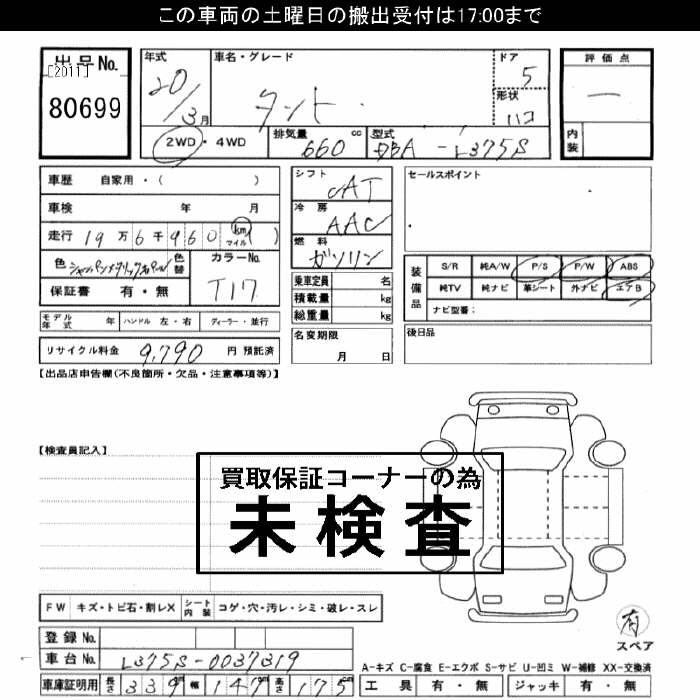 この車両の土曜日の搬出受付は17:00まで
出品No.
[2011]
80699
年式
20/3月
車名・グレード
タント
ドア
5
形状
ハコ
評価点
—
内装
2WD・4WD
排気量
660 cc
型式
DBA-L375S
車歴 自家用・( )
車検 年 月
走行 19万6千960 km マイル ( )
色
色替
カラーNo.
T17
保証書 有・無
シフト
CAT
冷房
AAC
燃料
ガソリン
乗車定員 名
積載量 kg
総重量 kg
セールスポイント
装備品
S/R 純A/W P/S P/W ABS
純TV 純ナビ 革シート 外ナビ エアB
ナビ型番:
モデル年式 年 ハンドル 左・右 ディーラー・並行
名変期限
月 日
後日品
リサイクル料金 9,790 円 預託済
【出品店申告欄(不良箇所・欠品・注意事項等)】
【検査員記入】
買取保証コーナーの為
未検査
FW キズ・トビ石・割レX シート内装 コゲ・穴・汚レ・シミ・破レ・スレ
登録No.
車台No. L375S-0037319
車庫証明用 長さ 339 幅 147 高さ 175
有
スペア
A-キズ C-腐食 E-エクボ S-サビ U-凹ミ W-補修 XX-交換済
工具 有・無 ジャッキ 有・無